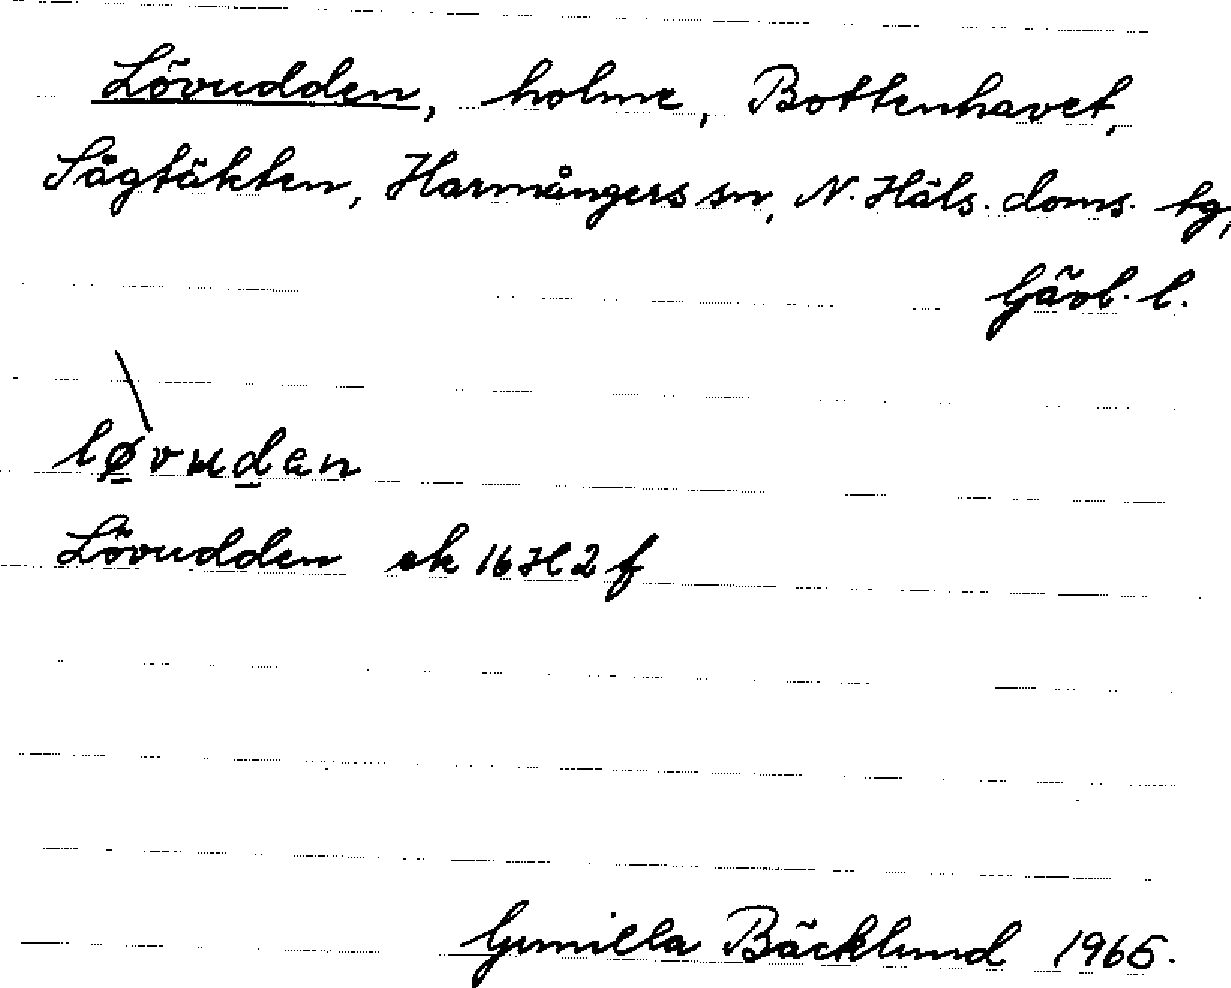 Lövudden, holme, Bottenhavet,
Sågtäkten, Harmångers sn, N. Häls. doms. tg,
Gävl. l.
løvudan
Lövudden ek 16H2f
Gunilla Bäcklund 1965.